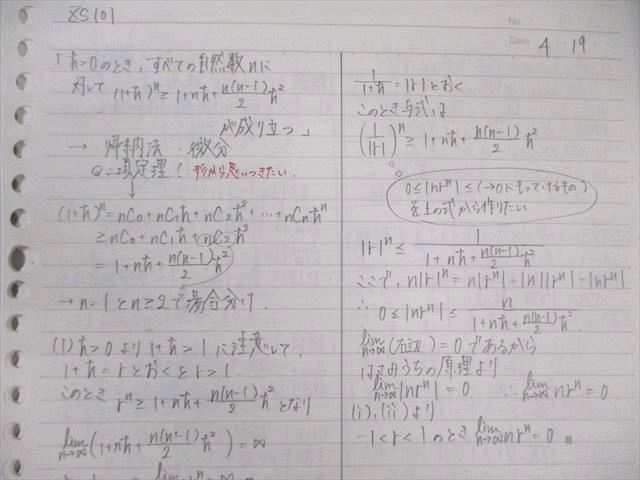 ZS101
「h>0のとき、すべての自然数nに
対して (1+h)ⁿ ≥ 1+nh+n(n-1)/2 h²
が成り立つ」
→ 帰納法・微分
◎二項定理! 形から思いつきたい。
↓
(1+h)ⁿ = nC₀+nC₁h+nC₂h²+…+nCₙhⁿ
≥ nC₀+nC₁h+nC₂h²
= 1+nh+n(n-1)/2 h²
→ n=1とn≥2で場合分け。
(1) h>0より1+h>1に注意して、
1+h=rとおくとr>1.
このとき rⁿ ≥ 1+nh+n(n-1)/2 h² となり
lim n→∞ (1+nh+n(n-1)/2 h²) = ∞
No.
Date 4・19
1/(1+h) = |r|とおく
このとき与式は
(1/|r|)ⁿ ≥ 1+nh+n(n-1)/2 h²
0≤|nrⁿ|≤(→0にもっていけるもの)
を上の式から作りたい
|r|ⁿ ≤ 1/(1+nh+n(n-1)/2 h²)
ここで、n|r|ⁿ=n|rⁿ|=|n||rⁿ|=|nrⁿ|
∴ 0≤|nrⁿ|≤ n/(1+nh+n(n-1)/2 h²)
lim n→∞ (右辺)=0 であるから
はさみうちの原理より
lim n→∞ |nrⁿ|=0 ∴ lim n→∞ nrⁿ=0
(i),(ii)より
-1<r<1のとき lim n→∞ nrⁿ=0 ■